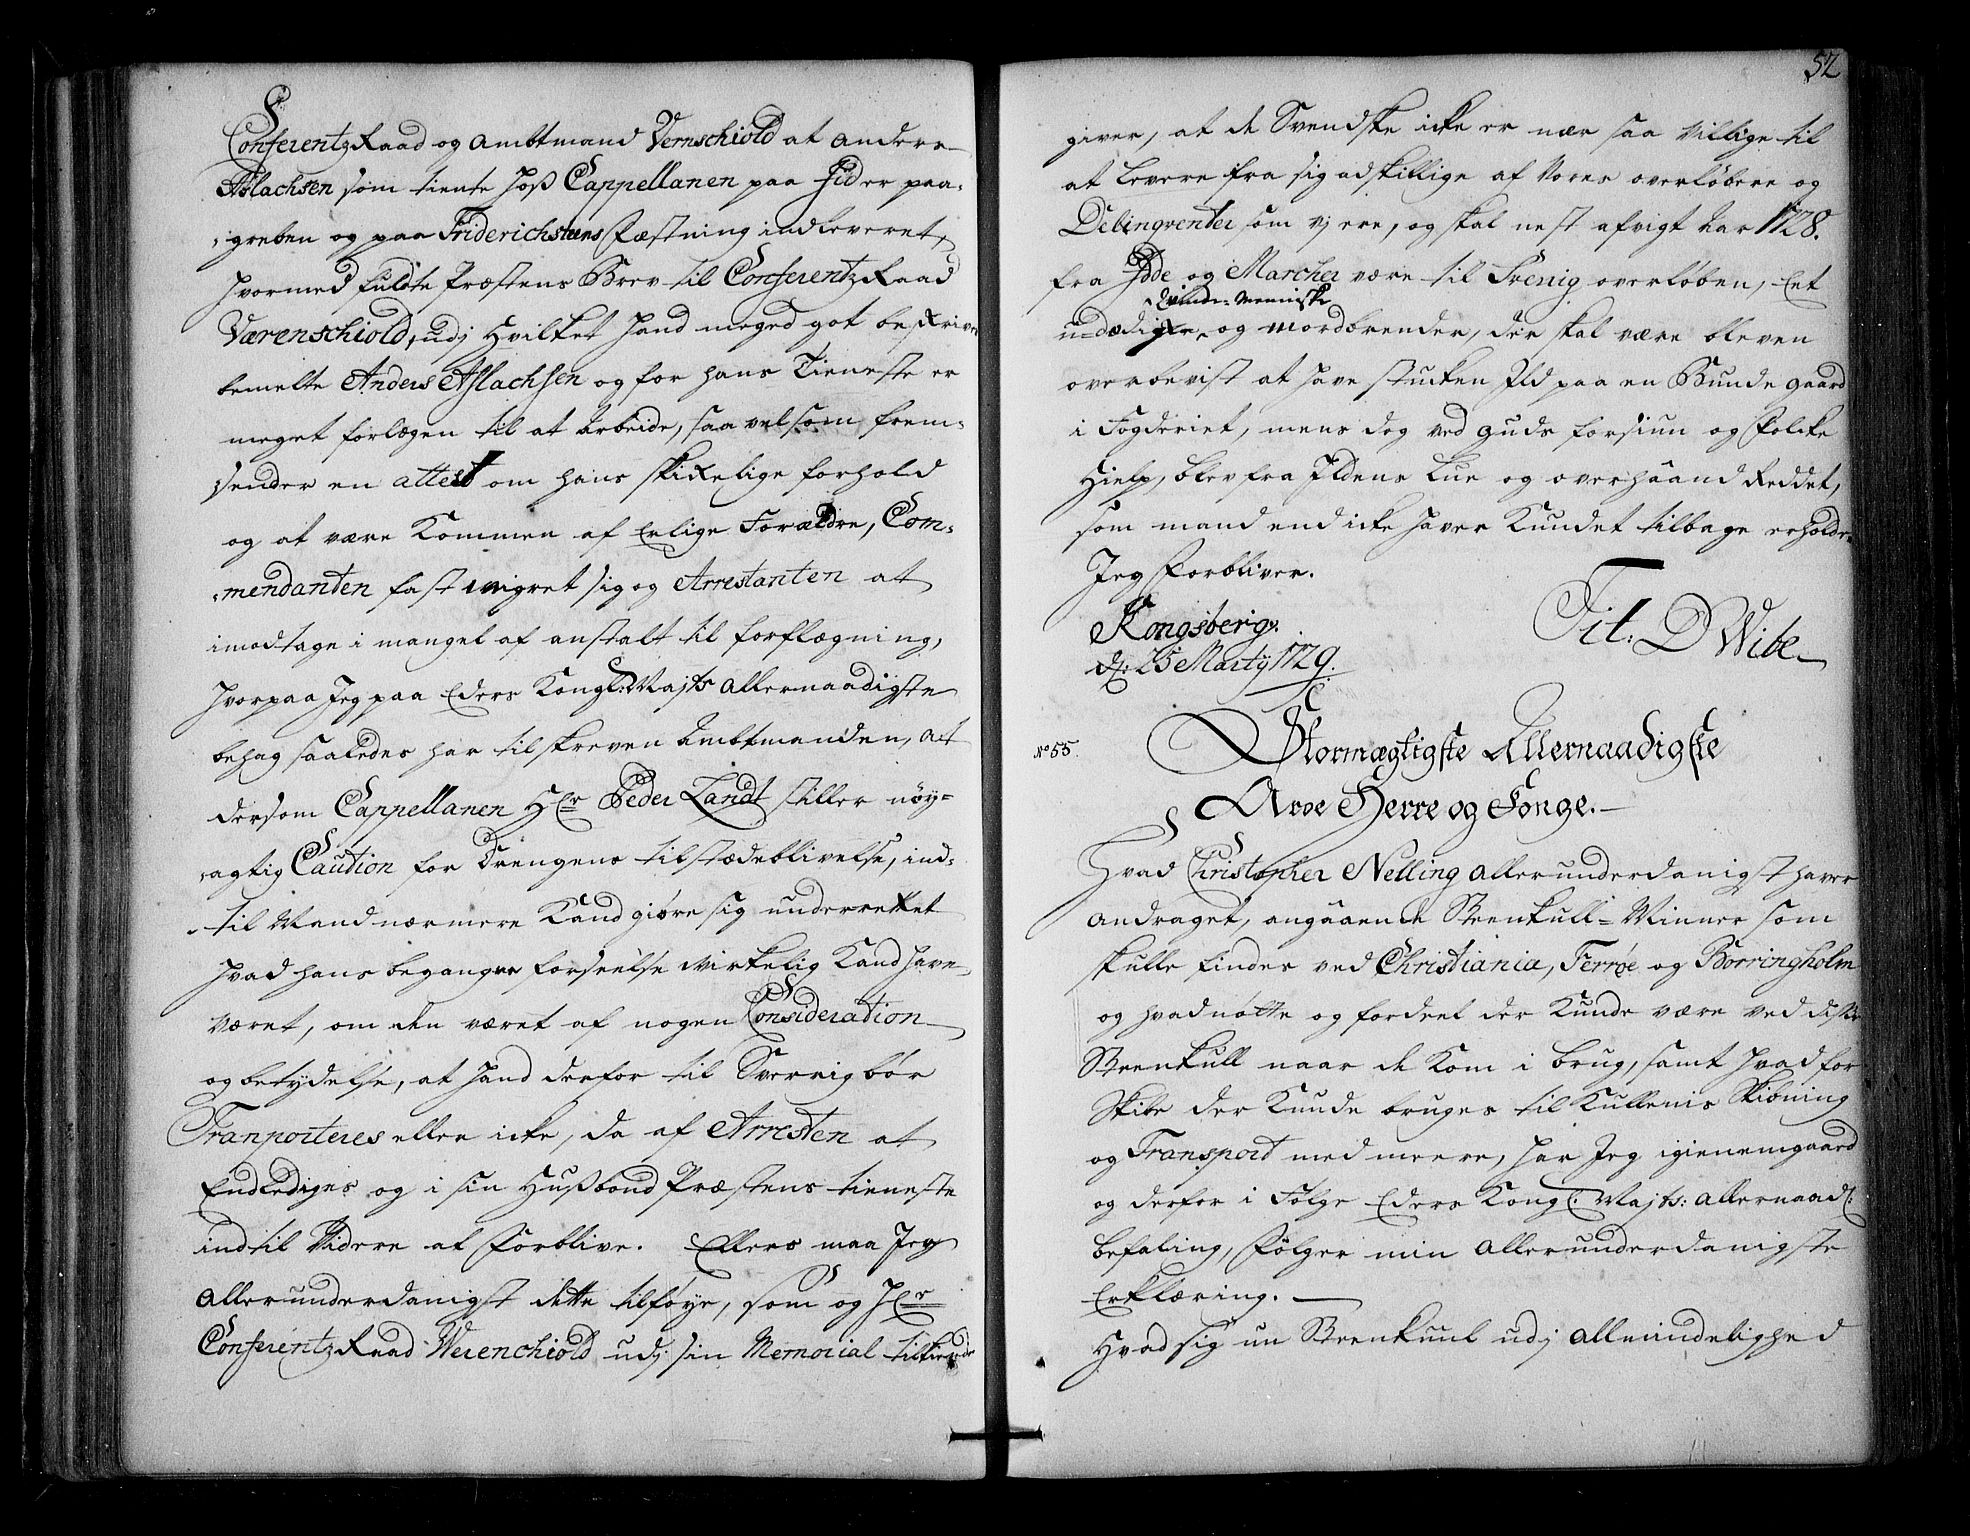 Conferentz Raad og Ambtmand Vernschiold at Anders
Aslachsen som tiente hoß Cappellanen paa Jid er paa-
greben og paa Friderichsteens Fæstning indleveret,
hvormed fuldte Præstens Brev til Conferentz Raad
Værenschiold, udj hvilket hand meged got beskriver
bemelte Anders Aslachsen og for hans Tieneste er
meget forlegen til at Arbeide, saa vel som frem-
sender en attest om hans skikelige forhold
og at være kommen af Erlige Forældre, Com-
mendanten fast weigret sig og Arrestanten at
imodtage i mangel af anstalt til forflegning,
hvorpaa Jeg paa Eders Kongl: Majts allernaadigste
behag saaledes har tilskreven Ambtmanden, at
dersom Cappellanen Hr Peder Landt stiller nöy-
agtig Caution for Drengens tilstædeblivelse, ind-
til Mand nærmere kand giöre sig underrettet
hvad hans begangne forseelse wirkelig kand have
været, om den været af nogen Consideration
og betydelse, at hand derfor til Sverrig bör
Tranporteres eller icke, da af Arresten at
Endlediges og i sin Hußbond Præstens tieneste
indtil Videre at forblive. Ellers maa Jeg
allerunderdanigst dette tilföye, som og Hr
Conferentz Raad Werenchiold udj sin Memorial tilkiende
52
giver, at de Svendske icke er nær saa villige til
at Levere fra sig adskillige af Vores overlöbere og
Delinqventer som vj ere, og skal nest afvigt Aar 1728.
fra Idde og Marcher være til Svenig overloben, Eet
Qvinde-Menniske
udædige og mordbrender, der skal være bleven
overbevist at have stucken Ild paa en Bunde gaard
i Fogderiet, mens dog ved Guds forsiun og Folcke
Hielp, blev fra Ildens Lue og overhaand Reddet,
som mand end icke haver kundet tilbage erholde.
Jeg forbliver.
Kongsberg.
d: 25 Martij 1729.
Tit. D Wibe
No 55.
Stormægtigste Allernaadigste
Arve Herre og Konge.
Hvad Christopher Nelling allerunderdanigst haver
andraget, angaaende Steenkull-Miner som
skulle findes ved Christiania, Ferröe og Borringholm
og hvad nötte og fordeel der kunde være ved disse
Steenkull naar de kom i brug, samt hvad for
Skibe der kunde bruges til Kullenis Skibning
og Transport med meere, har Jeg igiennemgaaed
og derfor i Fölge Eders Kongl. Majts: allernaadl:
befaling, fölger min allerunderdanigste
Erklæring.
Hvad sig nu Steenkuul udj allmindelighed